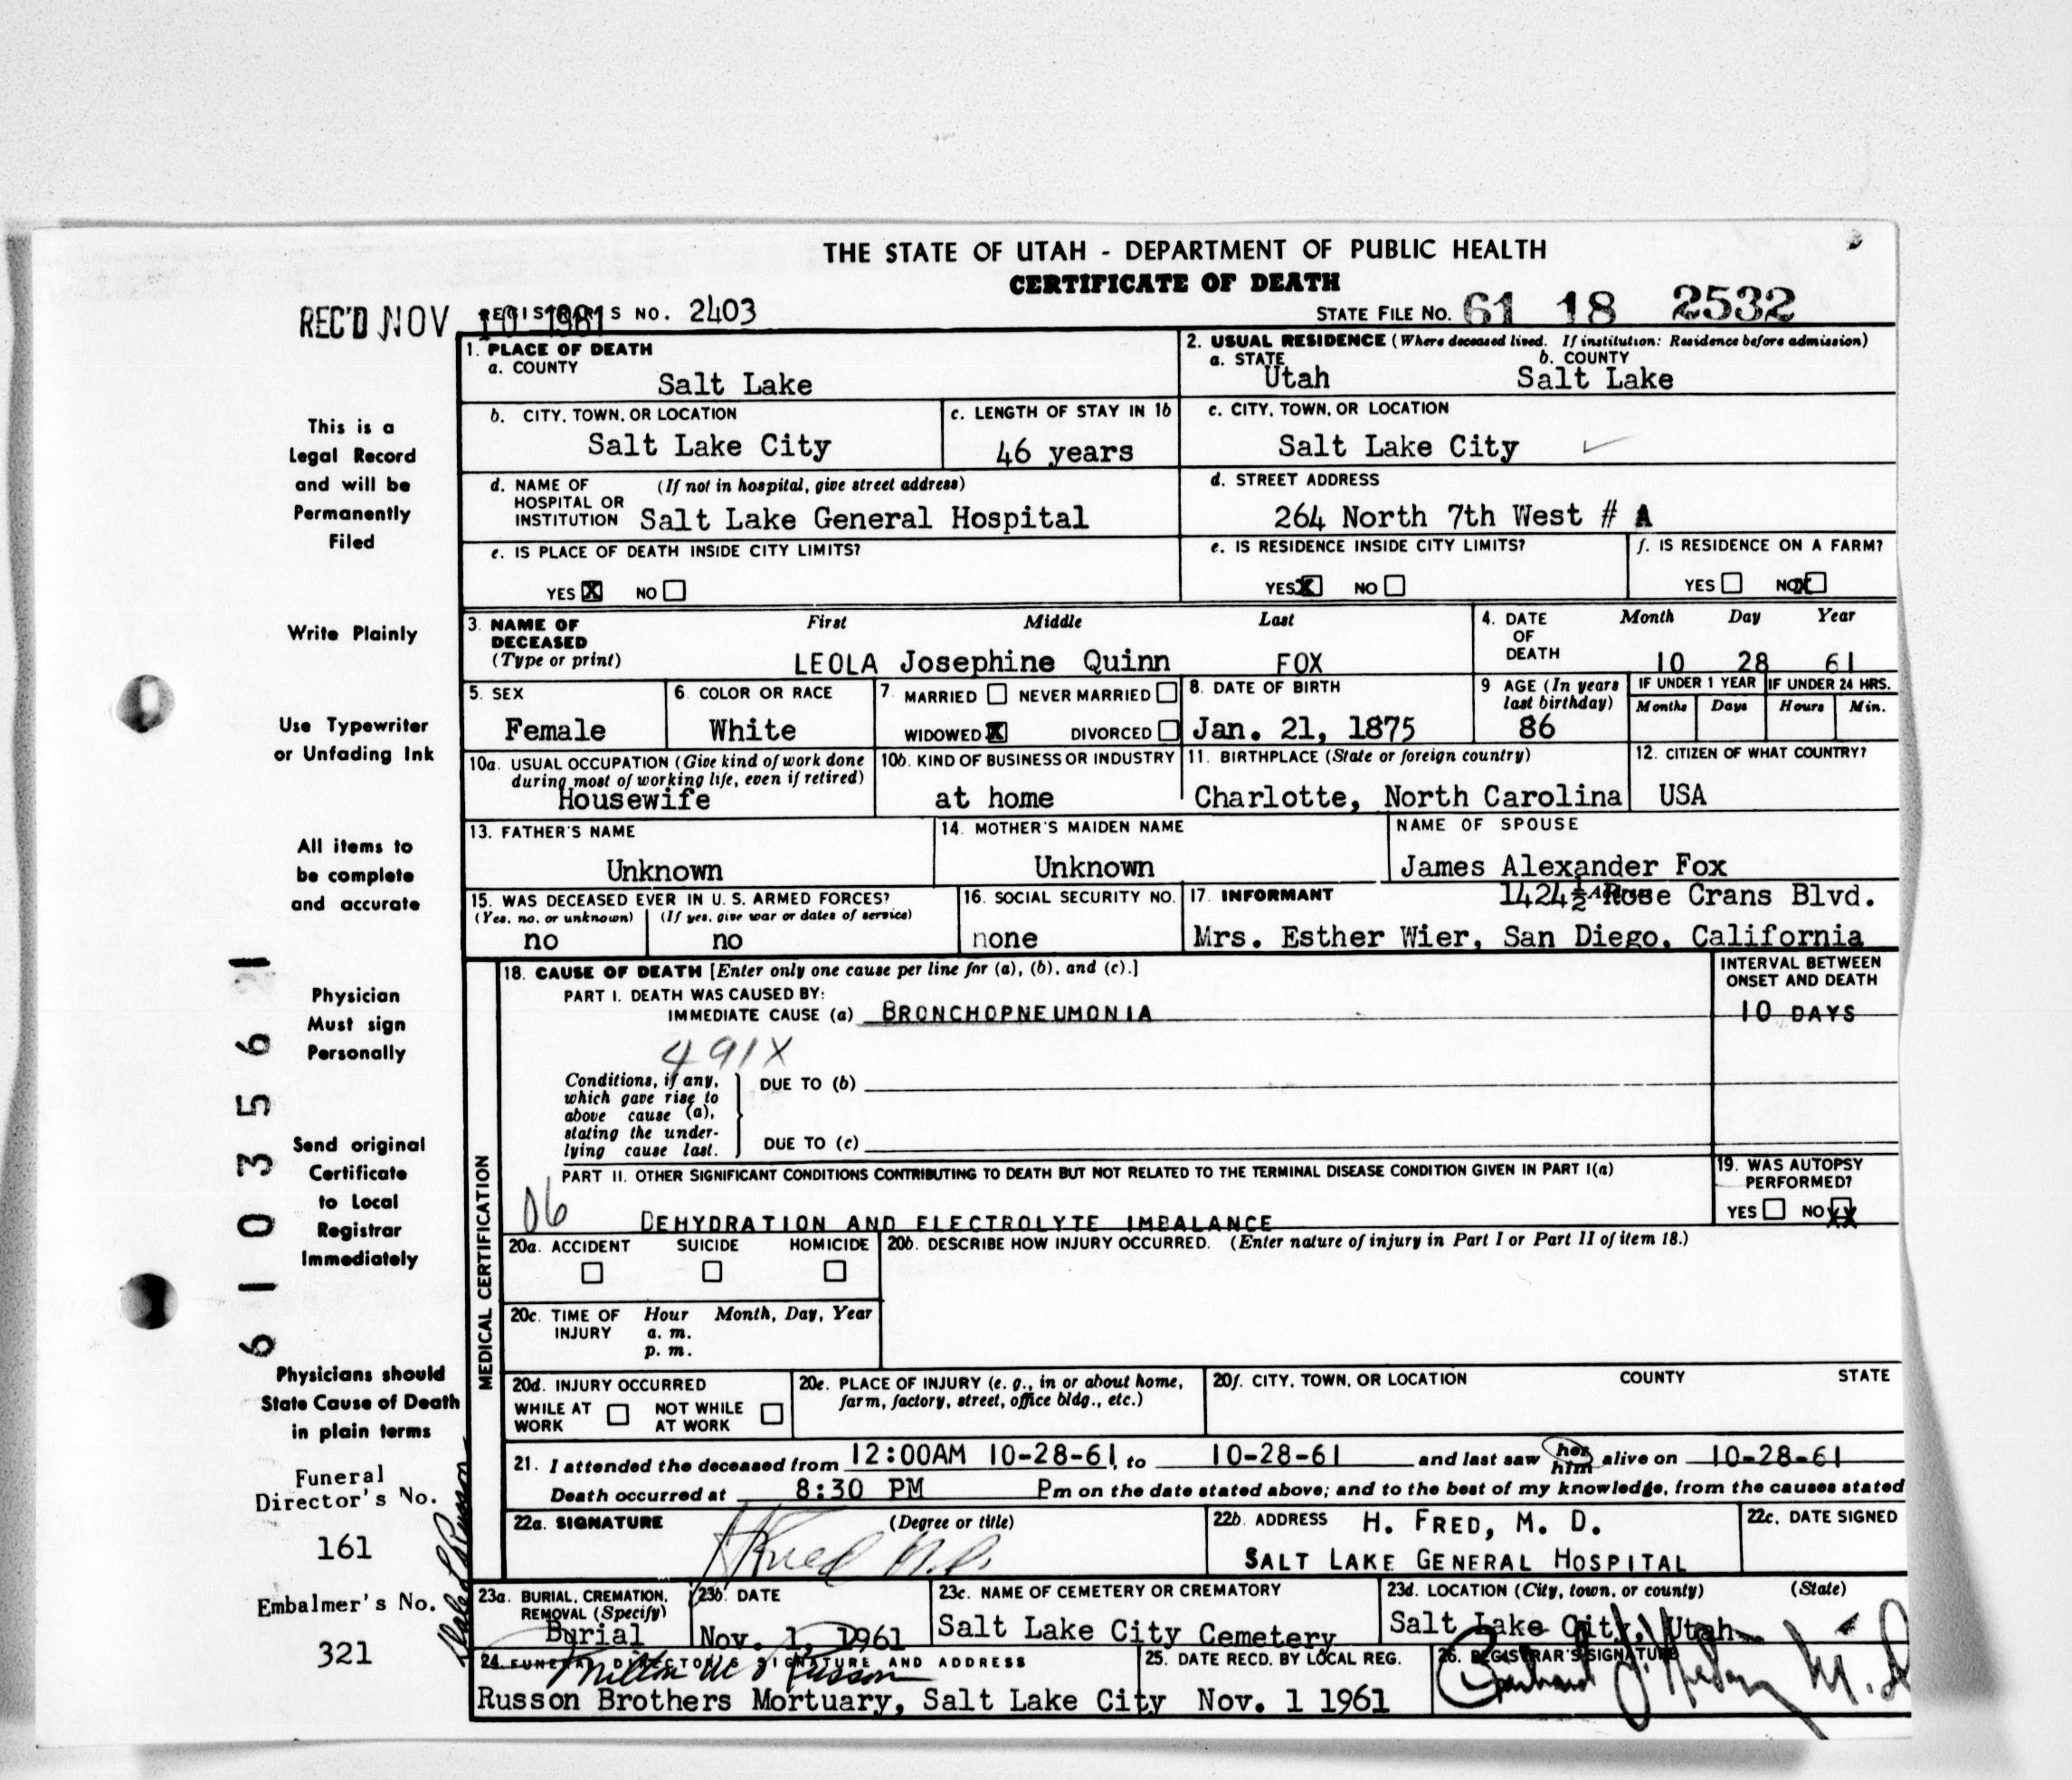 THE STATE OF UTAH - DEPARTMENT OF PUBLIC HEALTH
CERTIFICATE OF DEATH
REC'D NOV 10 1961 REGISTRAR'S NO. 2403 STATE FILE NO. 61 18 2532
1. PLACE OF DEATH
a. COUNTY
Salt Lake
2. USUAL RESIDENCE (Where deceased lived. If institution: Residence before admission)
a. STATE b. COUNTY
Utah Salt Lake
b. CITY, TOWN, OR LOCATION
Salt Lake City
c. LENGTH OF STAY IN 1b
46 years
c. CITY, TOWN, OR LOCATION
Salt Lake City
d. NAME OF (If not in hospital, give street address)
HOSPITAL OR
INSTITUTION Salt Lake General Hospital
d. STREET ADDRESS
264 North 7th West # A
e. IS PLACE OF DEATH INSIDE CITY LIMITS?
YES X NO
e. IS RESIDENCE INSIDE CITY LIMITS?
YES X NO
f. IS RESIDENCE ON A FARM?
YES NO X
3. NAME OF DECEASED (Type or print)
First Middle Last
LEOLA Josephine Quinn FOX
4. DATE OF DEATH
Month Day Year
10 28 61
5. SEX
Female
6. COLOR OR RACE
White
7. MARRIED NEVER MARRIED
WIDOWED X DIVORCED
8. DATE OF BIRTH
Jan. 21, 1875
9 AGE (In years last birthday)
86
IF UNDER 1 YEAR IF UNDER 24 HRS.
Months Days Hours Min.
10a. USUAL OCCUPATION (Give kind of work done
during most of working life, even if retired)
Housewife
10b. KIND OF BUSINESS OR INDUSTRY
at home
11. BIRTHPLACE (State or foreign country)
Charlotte, North Carolina
12. CITIZEN OF WHAT COUNTRY?
USA
13. FATHER'S NAME
Unknown
14. MOTHER'S MAIDEN NAME
Unknown
NAME OF SPOUSE
James Alexander Fox
15. WAS DECEASED EVER IN U. S. ARMED FORCES?
(Yes, no, or unknown) (If yes, give war or dates of service)
no no
16. SOCIAL SECURITY NO.
none
17. INFORMANT 1424½ Rose Crans Blvd.
Mrs. Esther Wier, San Diego, California
MEDICAL CERTIFICATION
18. CAUSE OF DEATH [Enter only one cause per line for (a), (b), and (c).]
PART I. DEATH WAS CAUSED BY:
IMMEDIATE CAUSE (a) BRONCHOPNEUMONIA
INTERVAL BETWEEN
ONSET AND DEATH
10 DAYS
491X
Conditions, if any,
which gave rise to
above cause (a),
stating the under-
lying cause last.
DUE TO (b)
DUE TO (c)
PART II. OTHER SIGNIFICANT CONDITIONS CONTRIBUTING TO DEATH BUT NOT RELATED TO THE TERMINAL DISEASE CONDITION GIVEN IN PART I(a)
06 DEHYDRATION AND ELECTROLYTE IMBALANCE
19. WAS AUTOPSY
PERFORMED?
YES NO XX
20a. ACCIDENT SUICIDE HOMICIDE
20b. DESCRIBE HOW INJURY OCCURRED. (Enter nature of injury in Part I or Part II of item 18.)
20c. TIME OF INJURY
Hour Month, Day, Year
a. m.
p. m.
20d. INJURY OCCURRED
WHILE AT WORK NOT WHILE AT WORK
20e. PLACE OF INJURY (e. g., in or about home,
farm, factory, street, office bldg., etc.)
20f. CITY, TOWN, OR LOCATION COUNTY STATE
21. I attended the deceased from 12:00AM 10-28-61, to 10-28-61 and last saw her him alive on 10-28-61
Death occurred at 8:30 PM Pm on the date stated above; and to the best of my knowledge, from the causes stated
22a. SIGNATURE (Degree or title)
H Fred M.D.
22b. ADDRESS H. FRED, M. D.
SALT LAKE GENERAL HOSPITAL
22c. DATE SIGNED
23a. BURIAL, CREMATION,
REMOVAL (Specify)
Burial
23b. DATE
Nov. 1, 1961
23c. NAME OF CEMETERY OR CREMATORY
Salt Lake City Cemetery
23d. LOCATION (City, town, or county) (State)
Salt Lake City, Utah
24. FUNERAL DIRECTOR'S SIGNATURE AND ADDRESS
Russon Brothers Mortuary, Salt Lake City
25. DATE RECD. BY LOCAL REG.
Nov. 1 1961
26. REGISTRAR'S SIGNATURE
This is a
Legal Record
and will be
Permanently
Filed
Write Plainly
Use Typewriter
or Unfading Ink
All items to
be complete
and accurate
Physician
Must sign
Personally
Send original
Certificate
to Local
Registrar
Immediately
Physicians should
State Cause of Death
in plain terms
Funeral
Director's No.
161
Embalmer's No.
321